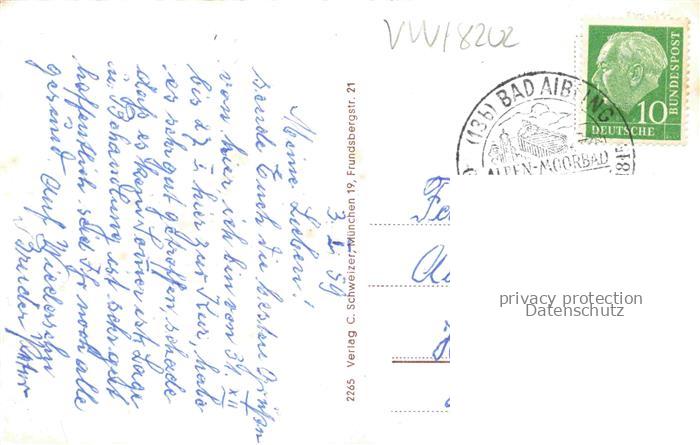 3. I. 59
Meine Lieben!
sende Euch die besten Grüße
von hier, ich bin vom 31. XII
bis 27. I hier zur Kur, habe
es sehr gut getroffen, schade
daß es kein Sommer ist. Lage
u. Behandlung ist sehr gut
hoffentlich seid Ihr noch alle
gesund. Auf Wiedersehn
Bruder
2265 Verlag C. Schweizer, München 19, Frundsbergstr. 21
VW/8202
(13b) BAD AIBLING
ALPEN-MOORBAD
10
DEUTSCHE
BUNDESPOST
privacy protection
Datenschutz